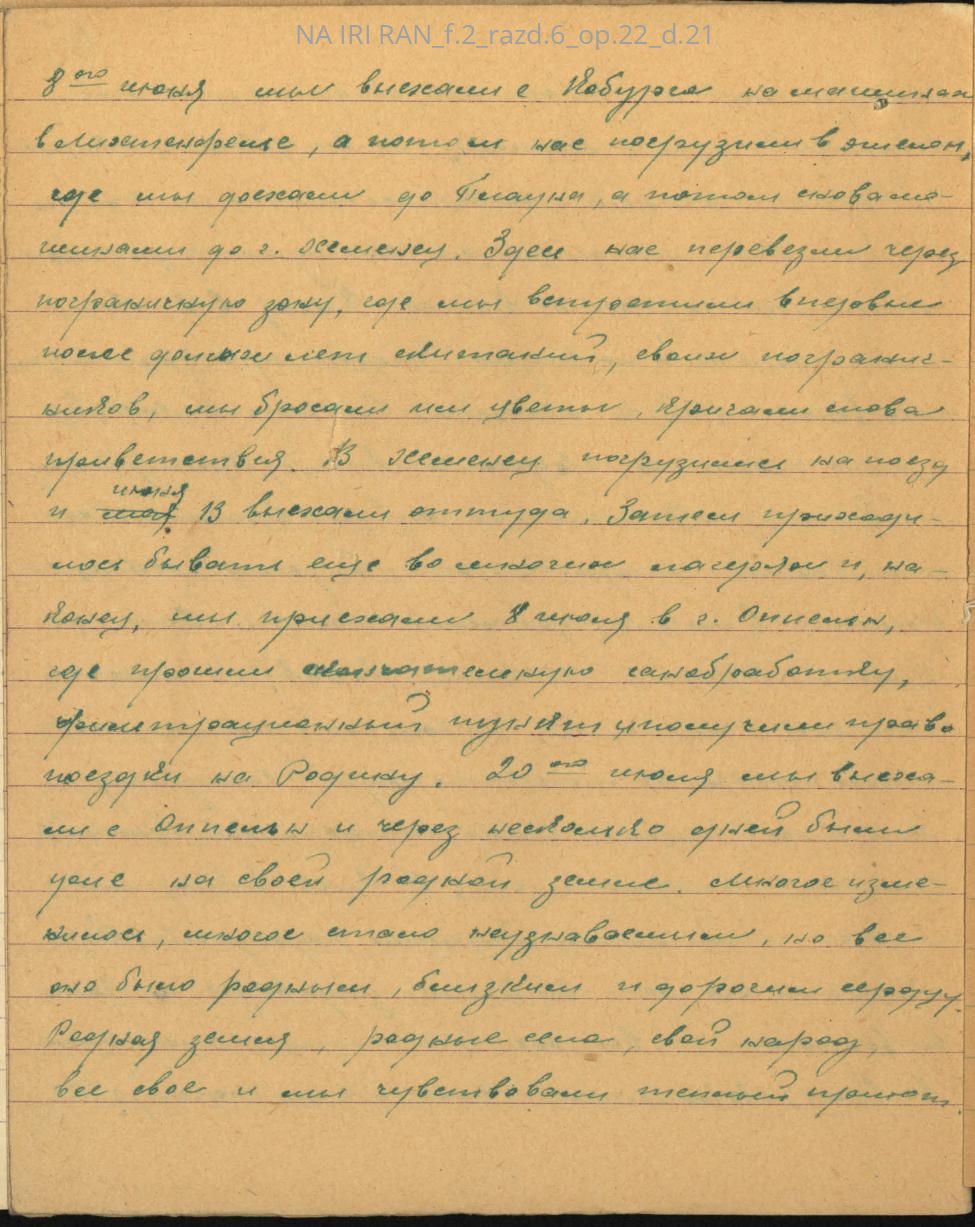 NA IRI RAN_f.2_razd.6_op.22_d.21
8ого июня мы выехали с Кобурга на машинах
в Лихтенфельс, а потом нас погрузили в эшелон,
где мы доехали до Плауна, а потом снова ма-
шинами до г. Хемниц. Здесь нас перевезли через
пограничную зону, где мы встретили впервые
после долгих лет скитаний, своих погранич-
ников, мы бросали им цветы, кричали слова
приветствия. В Хемниц погрузились на поезд
и июня 13 выехали оттуда. Затем приходи-
лось бывать еще во многих лагерях и, на-
конец, мы приехали 8 июля в г. Оппельн,
где прошли окончательную санобработку,
фильтрационный пункт и получили право
поездки на Родину. 20ого июля мы выеха-
ли с Оппельн и через несколько дней были
уже на своей родной земле. Многое изме-
нилось, многое стало неузнаваемым, но все
оно было родным, близким и дорогим сердцу.
Родная земля, родные села, свой народ,
все свое и мы чувствовали теплый приют.